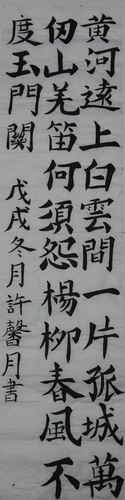 黃河遠上白雲間一片孤城萬
仞山羌笛何須怨楊柳春風不
度玉門關
戊戌冬月許馨月書